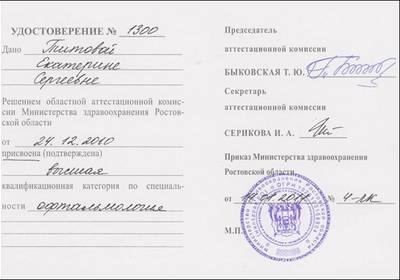 УДОСТОВЕРЕНИЕ № 1300
Дано Титовой
Екатерине
Сергеевне
Решением областной аттестационной комис-
сии Министерства здравоохранения Ростов-
ской области
от 24.12.2010
присвоена (подтверждена)
высшая
квалификационная категория по специаль-
ности офтальмология
Председатель
аттестационной комиссии
БЫКОВСКАЯ Т. Ю.
Секретарь
аттестационной комиссии
СЕРИКОВА И. А.
Приказ Министерства здравоохранения
Ростовской области
от № 4-лк
М.П.